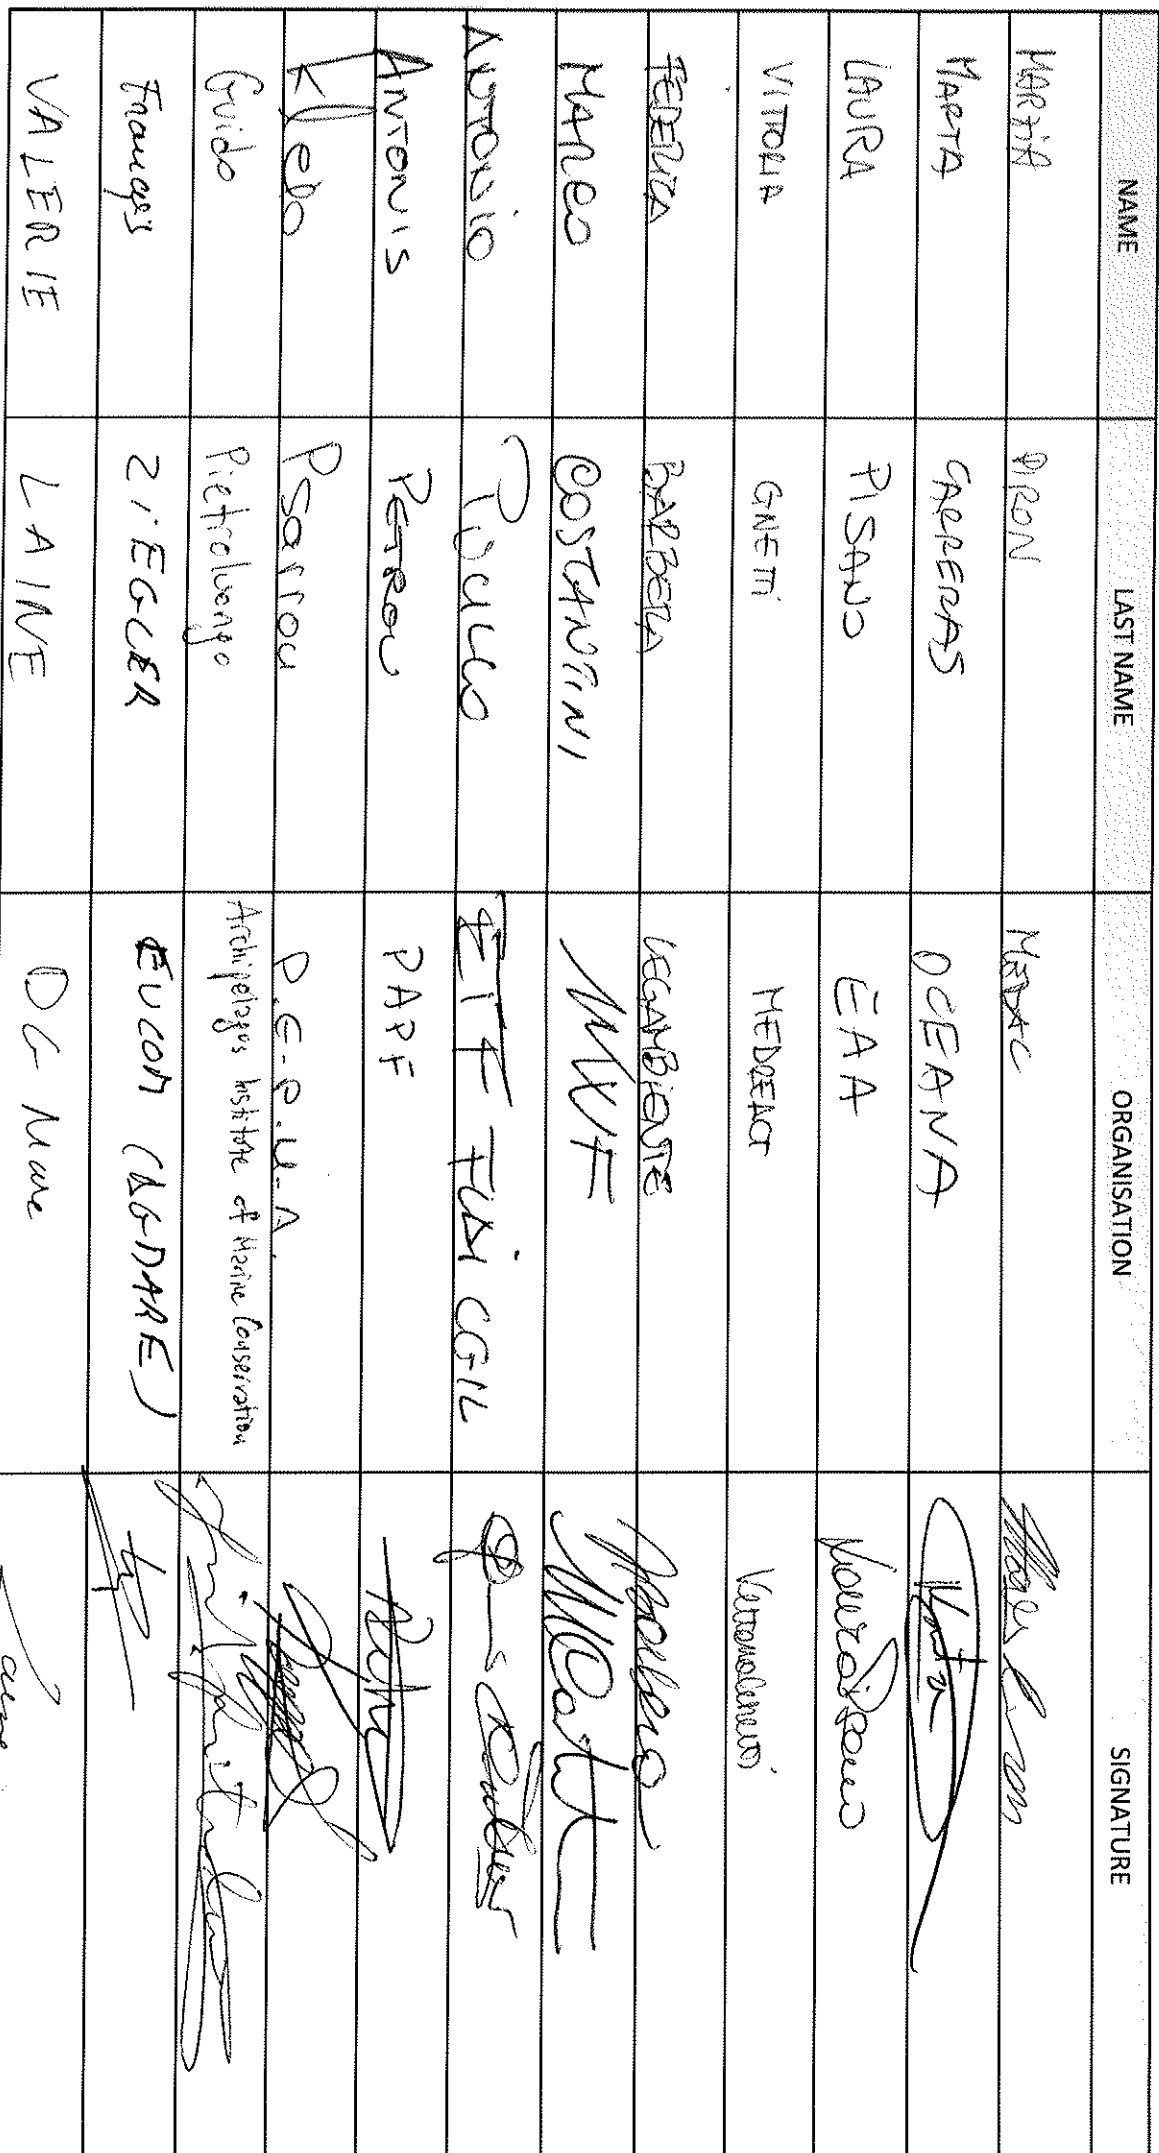 NAME LAST NAME ORGANISATION SIGNATURE
MARZIA PIRON MEDAC
MARTA CARRERAS OCEANA
LAURA PISANO EAA
VITTORIA GNETTI MEDREACT
FEDERICA BARBERA LEGAMBIENTE
MARCO COSTANTINI WWF
ANTONIO PUCILLO ETF FLAI CGIL
ANTONIS PETROU PAPF
Psarrou P.E.P.M.A.
Guido Pietroluongo Archipelagos Institute of Marine Conservation
François ZIEGLER EUCOM (DGMARE)
VALERIE LAINE DG Mare